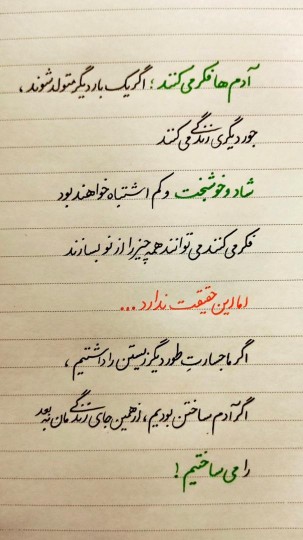 آدم ها فکر می کنند؛ اگر یک بار دیگر متولد شوند،
جور دیگری زندگی می کنند
شاد و خوشبخت و کم اشتباه خواهند بود
فکر می کنند می توانند همه چیز را از نو بسازند
اما این حقیقت ندارد ...
اگر ما جسارتِ طور دیگر زیستن را داشتیم،
اگر آدم ساختن بودیم، از همین جای زندگی مان به بعد
را می ساختیم!